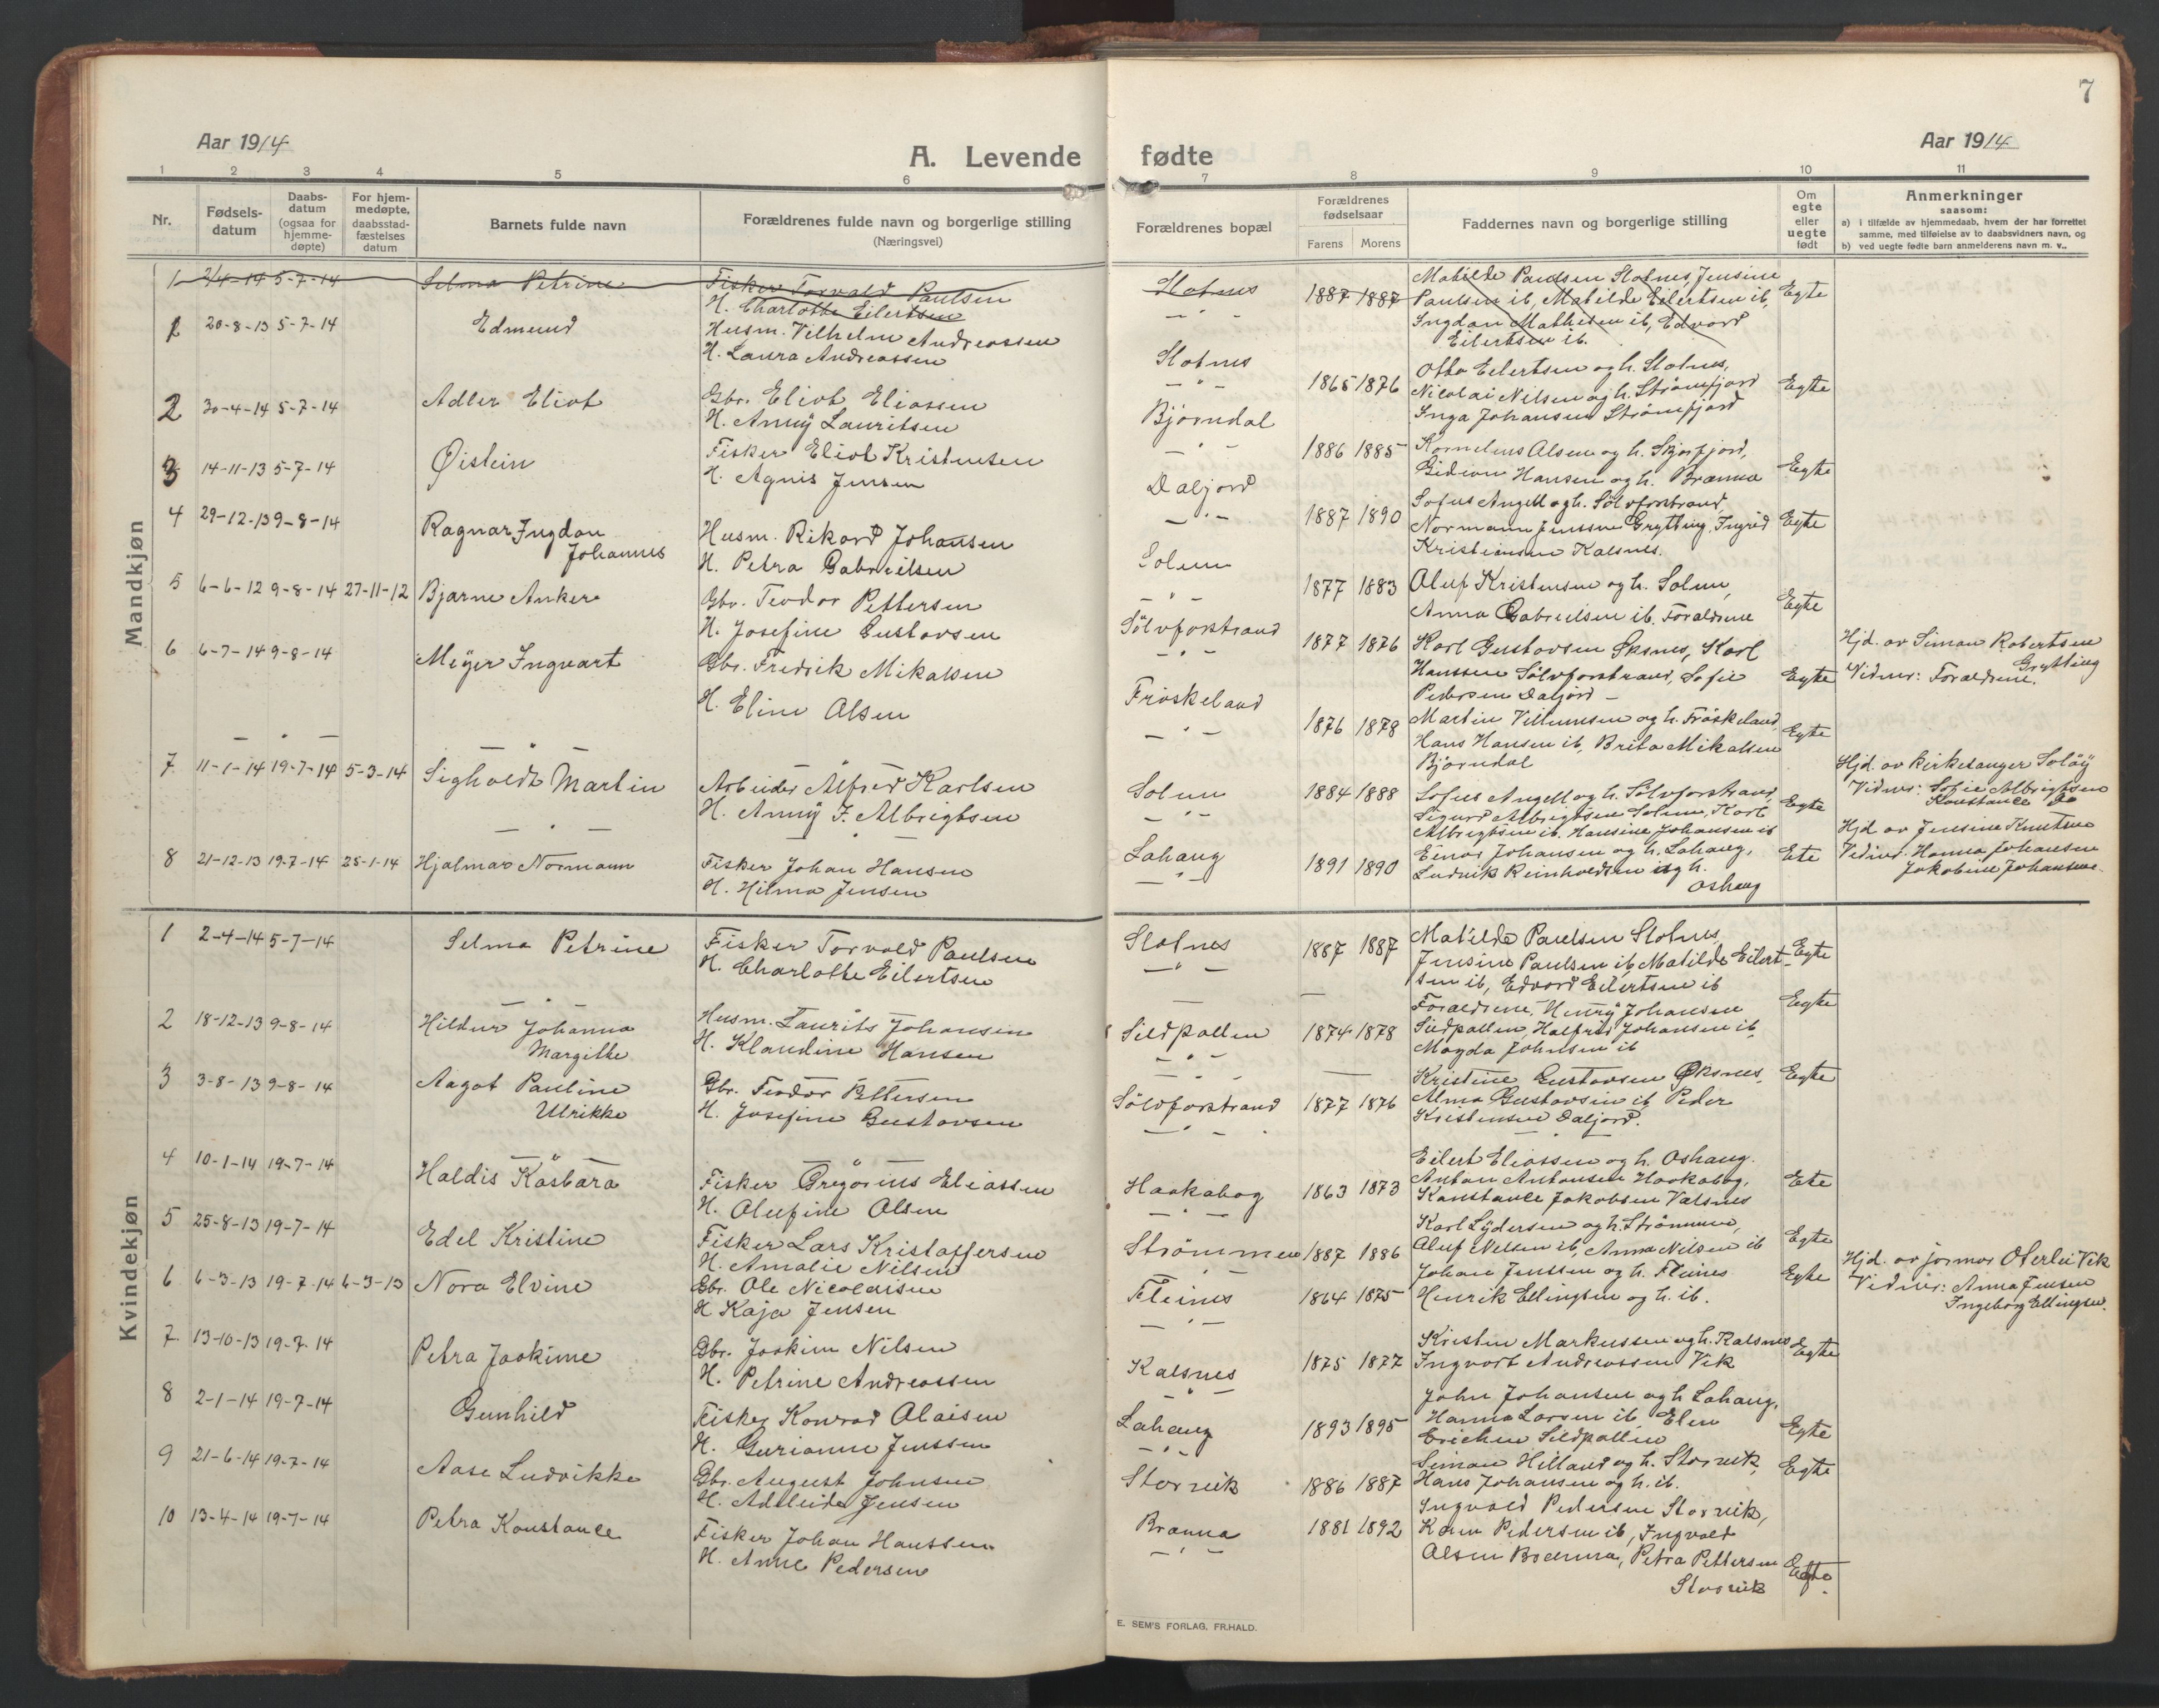 7
Aar 1914
A. Levende fødte
Aar 1914
1 2 3 4 5 6 7 8 9 10 11
Nr.
Fødsels-
datum
Daabs-
datum
(ogsaa for
hjemme-
døpte)
For hjem-
medøpte,
daabsstad-
fæstelses
datum
Barnets fulde navn
Forældrenes fulde navn og borgerlige stilling
(Næringsvei)
Forældrenes bopæl
Forældrenes
fødselsaar
Farens Morens
Faddernes navn og borgerlige stilling
Om
egte
eller
uegte
født
Anmerkninger
saasom:
a) i tilfælde av hjemmedaab, hvem der har forrettet
samme, med tilføielse av to daabsvidners navn, og
b) ved uegte fødte barn anmelderens navn m. v.,
Mandkjøn
1 2/4-14 5-7-14 Selma Petrine
Fisker Torvald Paulsen
H. Charlotte Eilertsen
Slotnes
1887 1887
Matilde Paulsen Slotnes, Jensine
Paulsen ib, Matilde Eilertsen ib,
Ingdan Mathisen ib, Edvard
Eilertsen ib.
Egte
1 20-8-13 5-7-14 Edmund
Husm. Vilhelm Andreassen
H. Laura Andreassen
Slotnes
1865 1876
Otto Eilertsen og h. Slotnes,
Nicolai Nilsen og h. Strømfjord
Inga Johansen Strømfjord
Egte
2 30-4-14 5-7-14 Adler Eliot
Gbr. Eliot Eliassen
H. Anny Lauritsen
Bjørndal
1886 1885
Kornelius Olsen og h. Skjørfjord,
Gideon Hansen og h. Brænna
Egte
3 14-11-13 5-7-14 Øistein
Fisker Eliot Kristensen
H. Agnis Jensen
Daljord
1887 1890
Sofus Angell og h. Sölvforstrand,
Normann Jenssen Grytting, Ingrid
Kristiansen Kalsnes.
Egte
4 29-12-13 9-8-14 Ragnar Ingdan
Johannes
Husm. Rikard Johansen
H. Petra Gabrielsen
Solum
1877 1883
Oluf Kristensen og h. Solum,
Anna Gabrielsen ib. Forældrene
Egte
5 6-6-12 9-8-14 27-11-12 Bjarne Anker
Gbr. Teodor Pettersen
H. Josefine Gustavsen
Sölvforstrand
1877 1876
Karl Gustavsen Øksnes, Karl
Hanssen Sölvforstrand, Sofie
Pedersen Daljord
Egte
Hjd. av Simon Robertsen
Grytting
Vidner: Forældrene.
6 6-7-14 9-8-14 Meyer Ingvart
Gbr. Fredrik Mikalsen
H. Eline Olsen
Frøskeland
1876 1878
Martin Villumsen og h. Frøskeland,
Hans Hansen ib, Brita Mikalsen
Bjørndal
Egte
7 11-1-14 19-7-14 5-3-14 Sigholdt Martin
Arbeider Alfred Karlsen
H. Anny F. Albrigtsen
Solum
1884 1888
Sofus Angell og h. Sölvforstrand,
Sigurd Albrigtsen Solum, Karl
Albrigtsen ib. Hansine Johansen ib
Egte
Hjd. av kirkesanger Soløy
Vidner: Sofie Albrigtsen
Konstance do
8 21-12-13 19-7-14 25-1-14 Hjalmar Normann
Fisker Johan Hansen
H. Hilma Jensen
Lahaug
1891 1890
Einar Johansen og h. Lahaug,
Ludvik Reinholdtsen og h.
Oshaug
Ete
Hjd. av Jensine Knutsen
Vidner: Hanna Johansen
Jakobine Johansen.
Kvindekjøn
1 2-4-14 5-7-14 Selma Petrine
Fisker Torvald Paulsen
H. Charlotte Eilertsen
Slotnes
1887 1887
Matilde Paulsen Slotnes,
Jensine Paulsen ib, Matilde Eilert-
sen ib, Edvard Eilertsen ib
Egte
2 18-12-13 9-8-14 Hildur Johanna
Margithe
Husm. Laurits Johansen
H. Klaudine Hansen
Sildpollen
1874 1878
Forældrene, Henry Johansen
Sildpollen, Halfred Johansen ib,
Magda Johnsen ib
Egte
3 3-8-13 9-8-14 Aagot Pauline
Ulrikke
Gbr. Teodor Pettersen
H. Josefine Gustavsen
Sölvforstrand
1877 1876
Kristine Gustavsen Øksnes,
Alma Gustavsen ib, Peder
Kristensen Daljord.
Egte
4 10-1-14 19-7-14 Haldis Kasbara
Fisker Gregorius Eliassen
H. Olufine Olsen
Haakabog
1863 1873
Eilert Eliassen og h. Oshaug.
Anton Antonsen Haakabog,
Konstance Jakobsen Valsnes
Ete
5 25-8-13 19-7-14 Edel Kristine
Fisker Lars Kristoffersen
H. Amalie Nilsen
Strömmen
1887 1886
Karl Lydersen og h. Strömmen,
Oluf Nilsen ib, Anna Nilsen ib
Egte
6 6-3-13 19-7-14 6-3-13 Nora Elvine
Gbr. Ole Nicolaisen
H Kaja Jensen
Fleines
1864 1875
Johan Jenssen og h. Fleines
Henrik Ellingsen og h. ib.
Egte
Hjd. av jormor Oterlei Vik
Vidner: Anna Jensen
Ingeborg Ellingsen.
7 13-10-13 19-7-14 Petra Joakime
Gbr. Joakim Nilsen
H. Petrine Andreassen
Kalsnes
1875 1877
Kristen Markussen og h. Kalsnes
Ingvart Andreassen Vik
Egte
8 2-1-14 19-7-14 Gunhild
Fisker Konrad Olaisen
H. Gurianne Jenssen
Lahaug
1893 1895
John Johansen og h Lahaug,
Hanna Larsen ib. Elen
Erichsen Sildpollen
Egte
9 21-6-14 19-7-14 Aase Ludvikke
Gbr. August Johnsen
H. Adeleide Jensen
Storvik
1886 1887
Simon Hilland og h. Storvik,
Hans Johansen og h. ib.
Egte
10 13-4-14 19-7-14 Petra Konstance
Fisker Johan Hanssen
H. Anne Pedersen
Brænna
1881 1892
Ingvald Pedersen Storvik,
Karen Pedersen ib, Ingvald
Olsen Brænna, Petra Pettersen
Storvik
Egte
E. SEM'S FORLAG, FR.HALD.